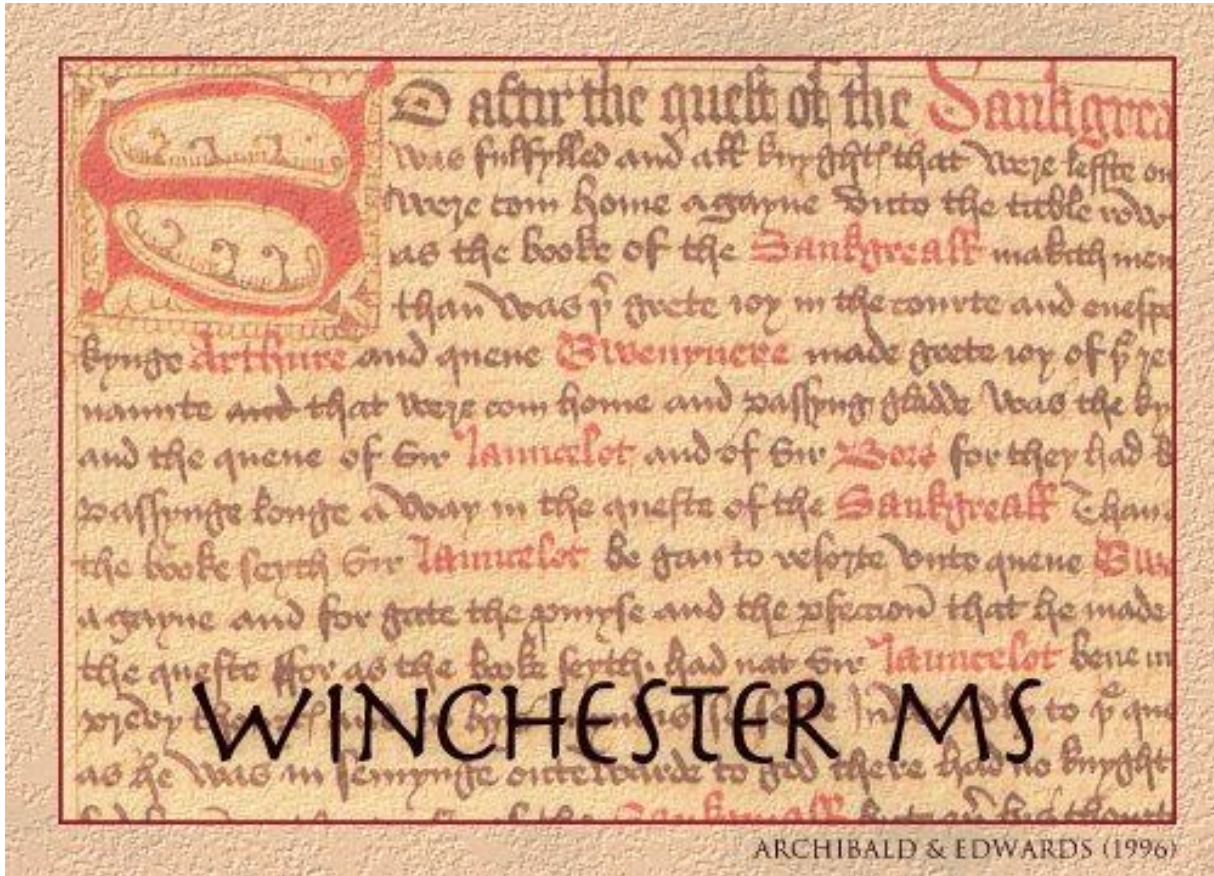 SO aftir the quest of the Sankgrea
was fulfylled and all knyghtes that were leffte on
were com home agayne vnto the table row
as the booke of the Sankgreall makith men
than was þer grete ioy in the courte and enespe
kynge Arthure and quene Gwenyvere made grete ioy of þe re
naunte and that were com home and passyng gladde was the ky
and the quene of Sir Launcelot and of Sir Bors for they had b
passynge longe a way in the queste of the Sankgreall Than
the booke seyth Sir Launcelot be gan to resorte vnto quene Gwe
agayne and for gate the pmyse and the pfeccion that he made
the queste ffor as the booke seyth had nat Sir Launcelot bene in
to þe que
WINCHESTER MS
as he was in semynge outewarde to god there had no knyght
Sankgreall
ARCHIBALD & EDWARDS (1996)